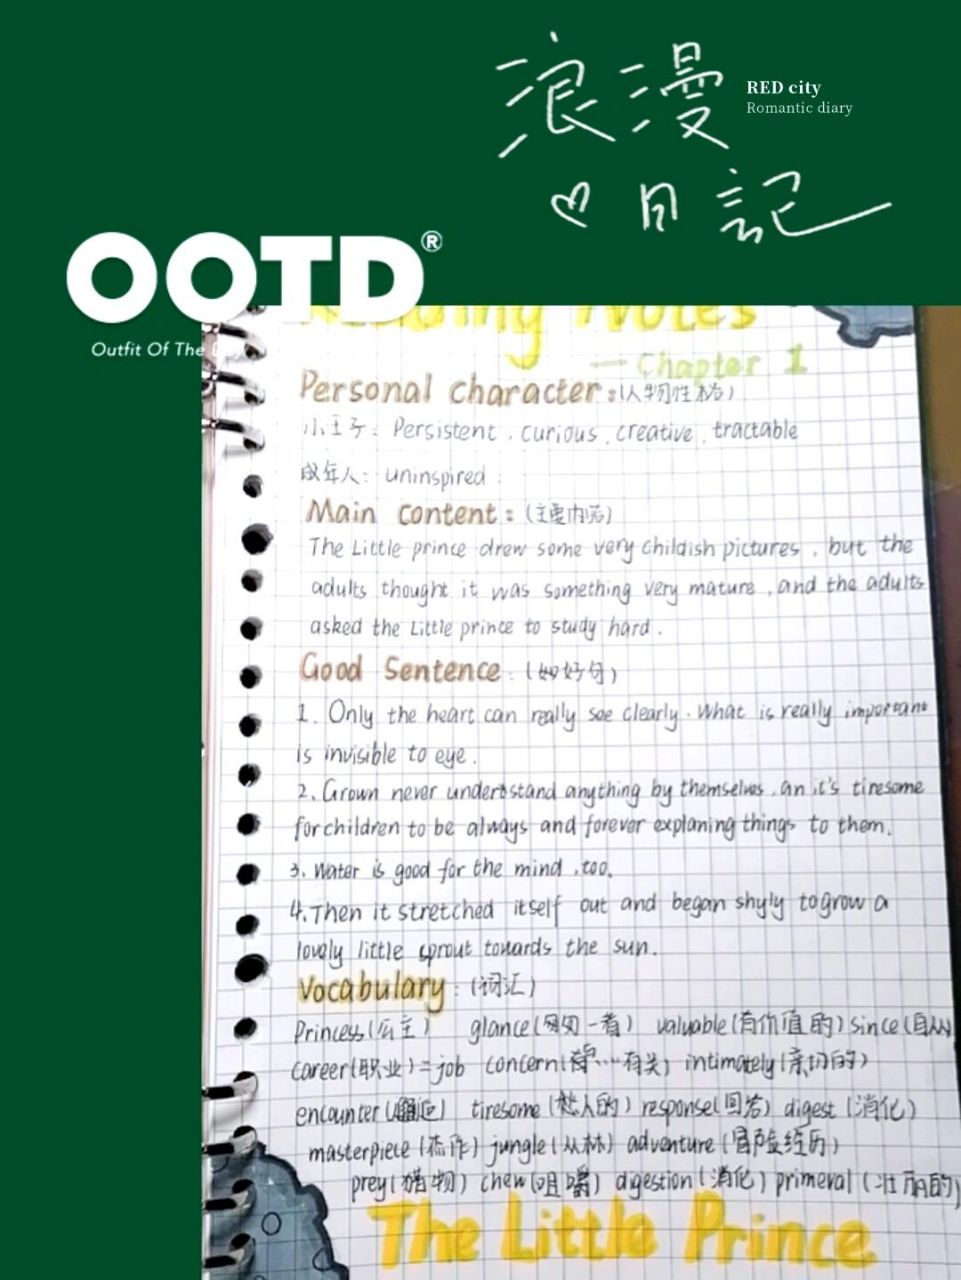 浪漫
RED city
Romantic diary
日記
OOTD®
Outfit Of The
Reading Notes
— Chapter 1
Personal character:(人物性格)
小王子: Persistent, curious, creative, tractable
成年人: uninspired
Main content:(主要内容)
The Little prince drew some very childish pictures, but the
adults thought it was something very mature, and the adults
asked the Little prince to study hard.
Good Sentence:(好句)
1. Only the heart can really see clearly. What is really important
is invisible to eye.
2. Grown never understand anything by themselves, an it's tiresome
for children to be always and forever explaning things to them.
3. Water is good for the mind, too.
4. Then it stretched itself out and began shyly to grow a
lovely little sprout towards the sun.
Vocabulary:(词汇)
Princess(公主) glance(匆匆一看) valuable(有价值的) since(自从
career(职业)=job concern(与…有关) intimately(亲切的)
encounter(邂逅) tiresome(愁人的) response(回答) digest(消化)
masterpiece(杰作) jungle(丛林) adventure(冒险经历)
prey(猎物) chew(咀嚼) digestion(消化) primeval(壮丽的)
The Little Prince